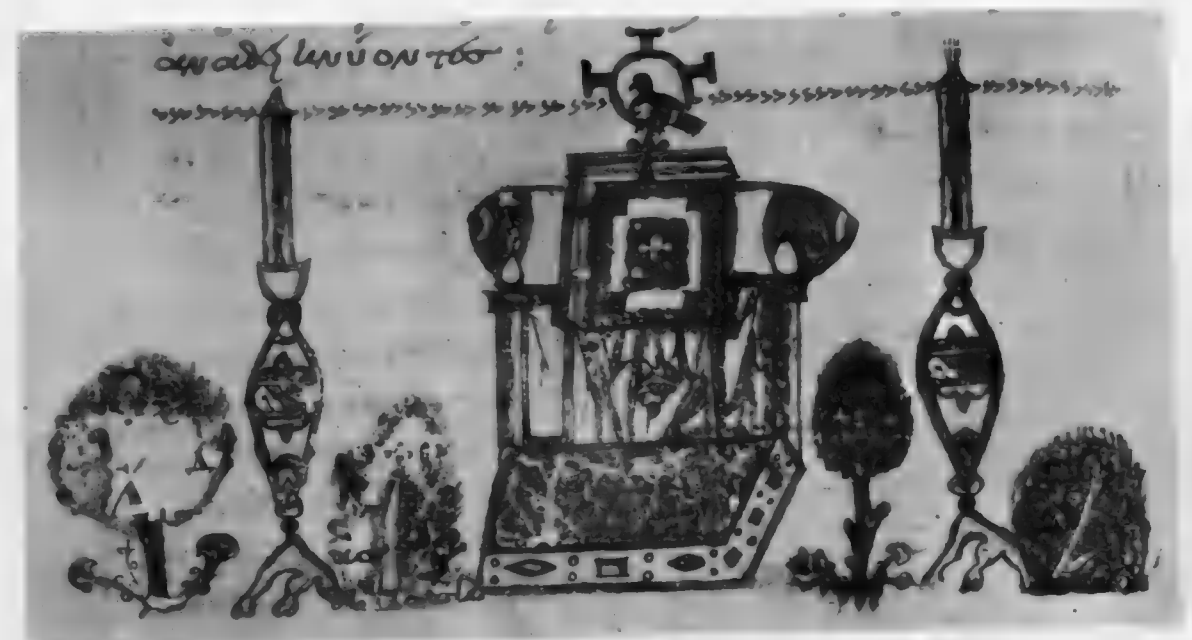 ἀναδεικνύοντος :